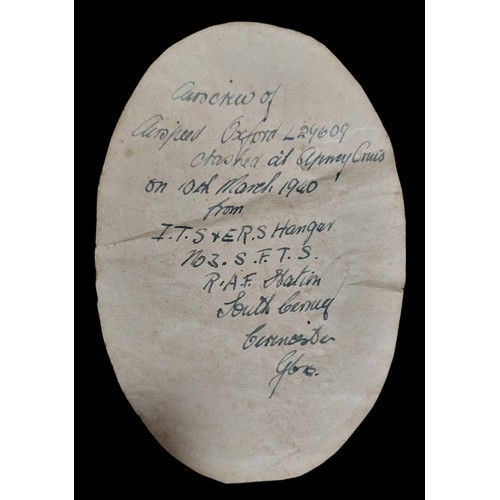 Airscrew of
Airspeed Oxford L24609
crashed at Ampney Crucis
on 10th March 1940
from
I.T.S & E.R.S Hangar
No 3. S.F.T.S.
R.A.F. Station
South Cerney
Cirencester
Glos.